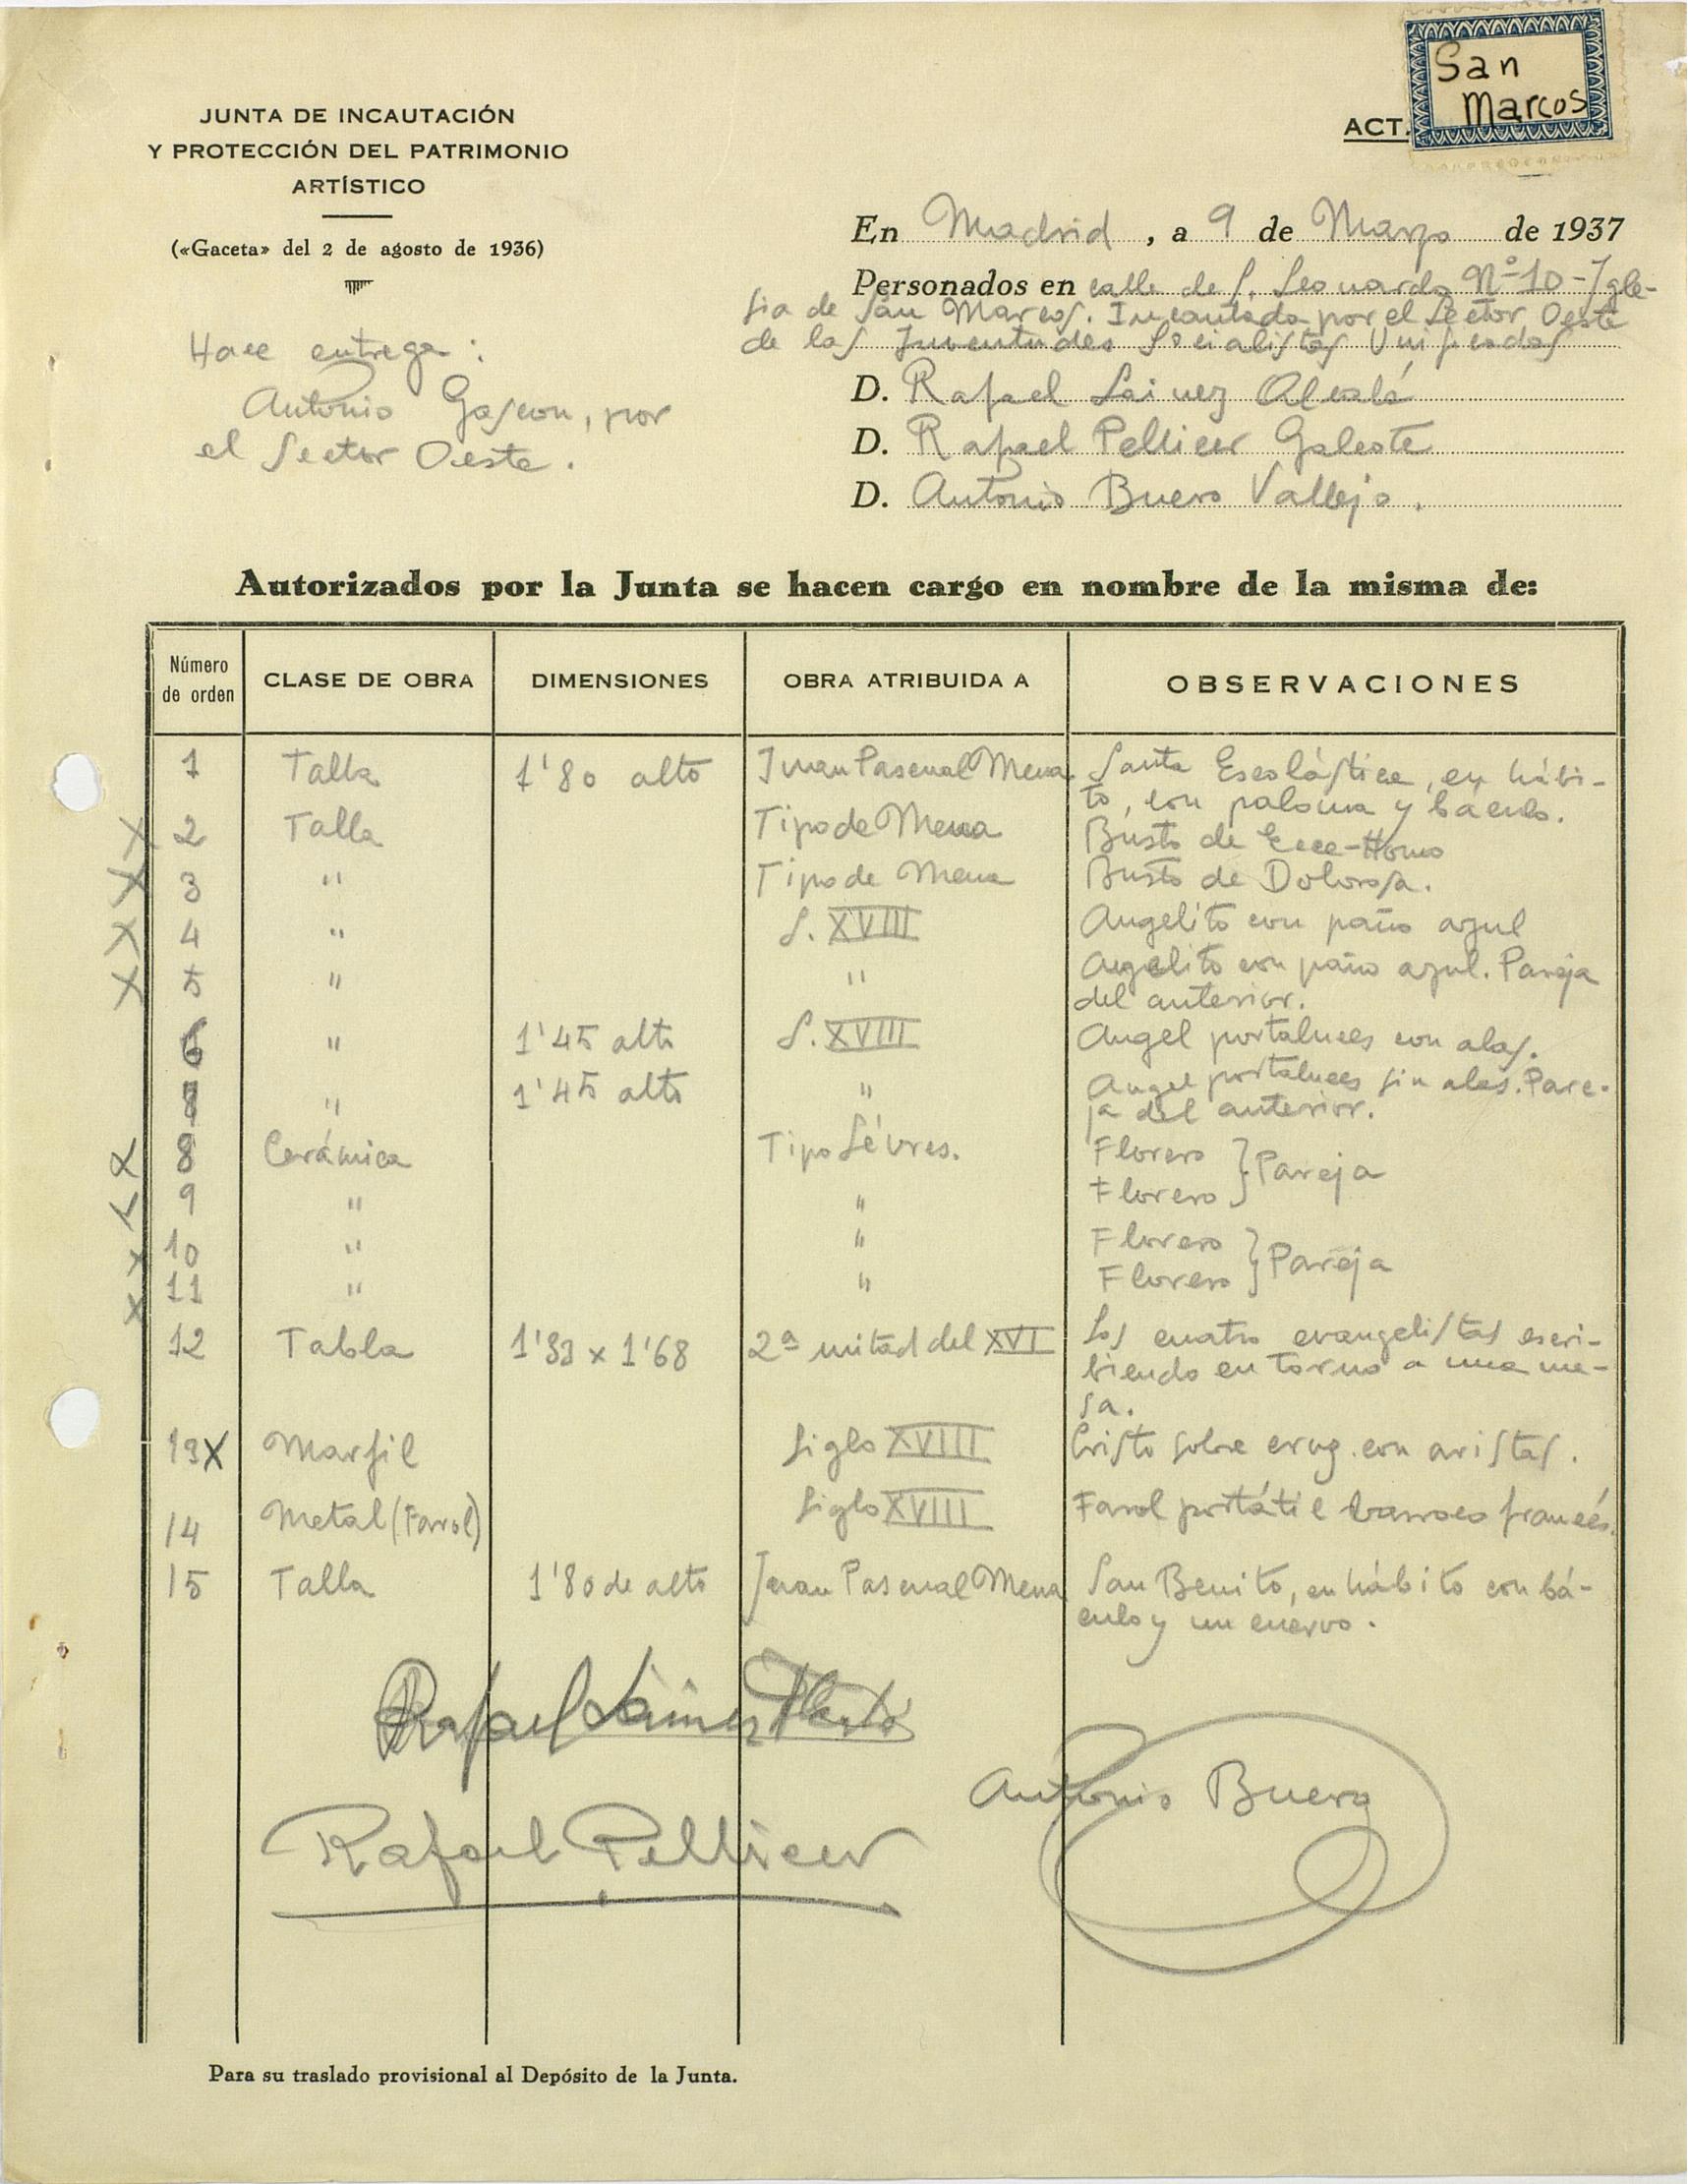 San
Marcos
ACT.
JUNTA DE INCAUTACIÓN
Y PROTECCIÓN DEL PATRIMONIO
ARTÍSTICO
(«Gaceta» del 2 de agosto de 1936)
En Madrid, a 9 de Marzo de 1937
Personados en calle de S. Leonardo Nº 10 - Igle-
sia de San Marcos. Incautada por el Sector Oeste
de las Juventudes Socialistas Unificadas
Hace entrega:
Antonio Gascon, por
el Sector Oeste.
D. Rafael Lainez Alcalá
D. Rafael Pellicer Galeote
D. Antonio Buero Vallejo.
Autorizados por la Junta se hacen cargo en nombre de la misma de:
Número de orden CLASE DE OBRA DIMENSIONES OBRA ATRIBUIDA A OBSERVACIONES
1 Talla 1'80 alto Juan Pascual Mena. Santa Escolástica, en hábi-
to, con paloma y báculo.
X 2 Talla Tipo de Mena Busto de Ecce-Homo
X 3 " Tipo de Mena Busto de Dolorosa.
X 4 " S. XVIII Angelito con paño azul
X 5 " " Angelito con paño azul. Pareja
del anterior.
6 " 1'45 alto S. XVIII Angel portaluces con alas.
7 " 1'45 alto " Angel portaluces sin alas. Pare-
ja del anterior.
8 Cerámica Tipo Sévres. Florero } Pareja
9 " " Florero
X 10 " " Florero } Pareja
X 11 " " Florero
12 Tabla 1'33 x 1'68 2ª mitad del XVI Los cuatro evangelistas escri-
biendo en torno a una me-
sa.
13 X Marfil Siglo XVIII Cristo sobre cruz con aristas.
14 Metal (Farol) Siglo XVIII Farol portátil barroco francés.
15 Talla 1'80 de alto Juan Pascual Mena San Benito, en hábito con bá-
culo y un cuervo.
Rafael Lainez Alcalá
Antonio Buero
Rafael Pellicer
Para su traslado provisional al Depósito de la Junta.